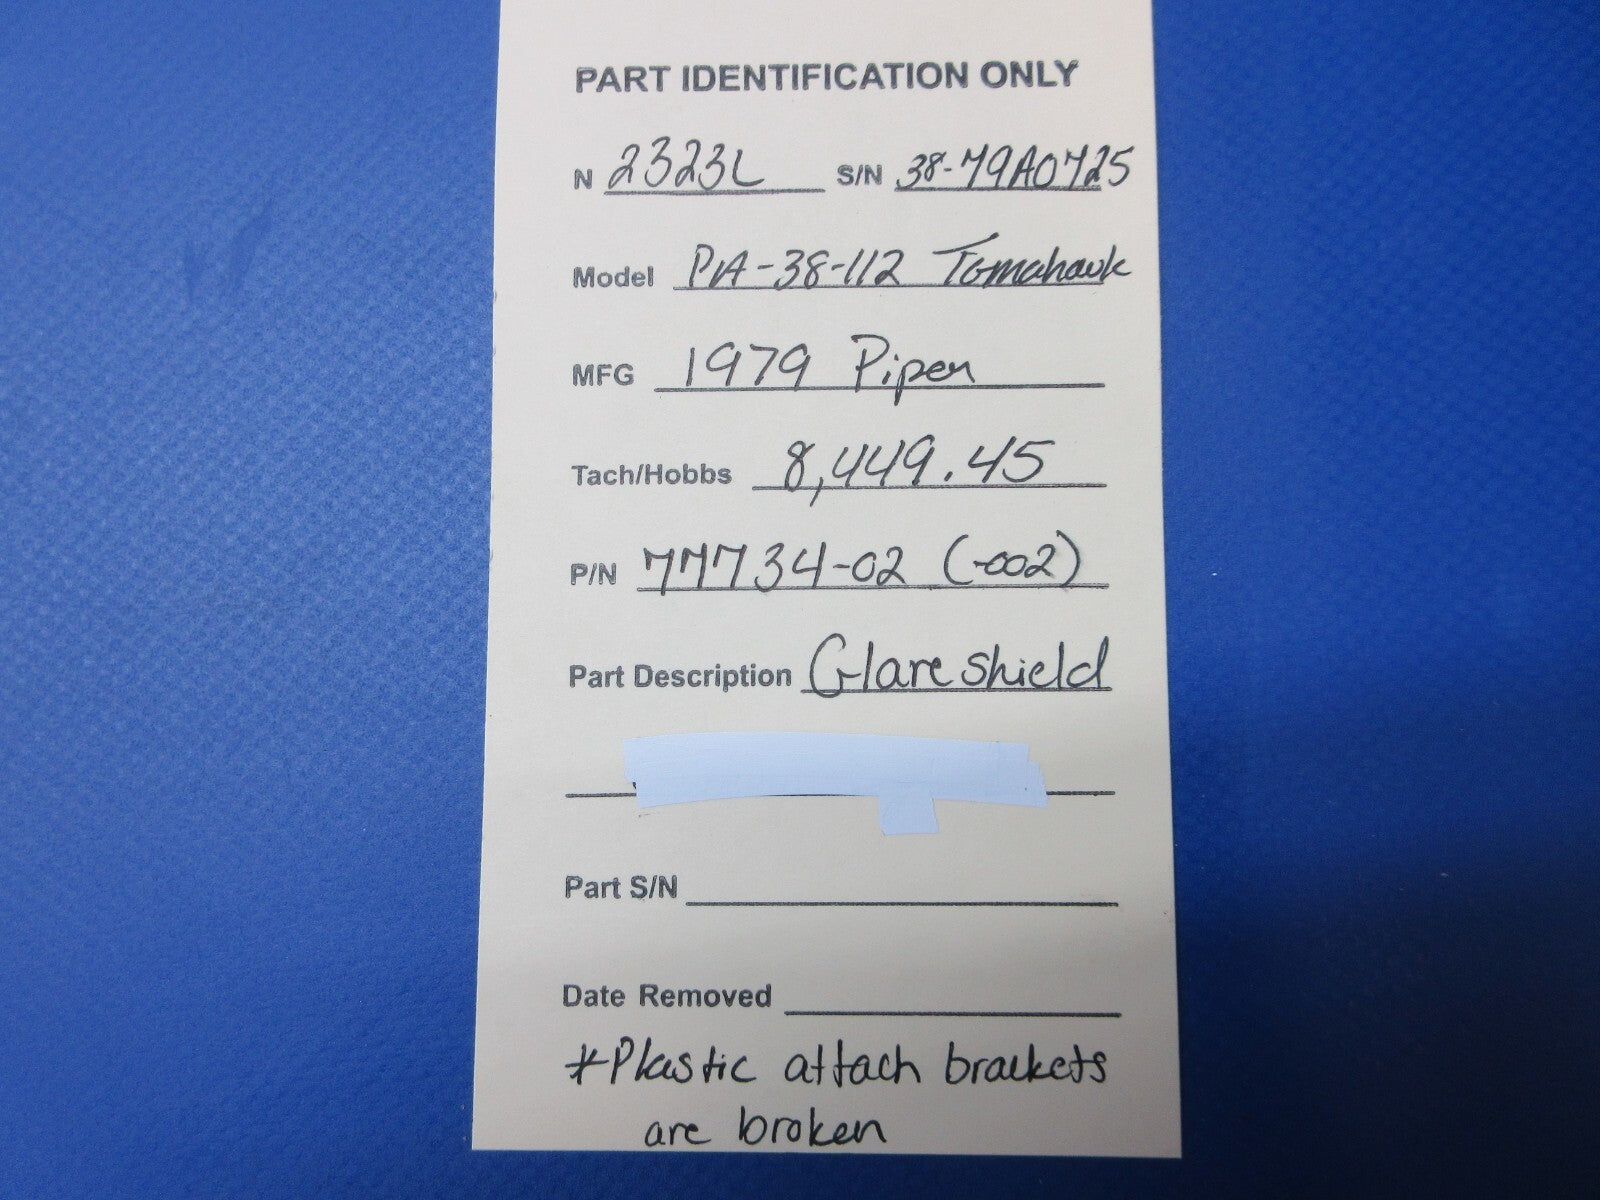 PART IDENTIFICATION ONLY
N 2323L S/N 38-79A0725
Model PA-38-112 Tomahawk
MFG 1979 Piper
Tach/Hobbs 8,449.45
P/N 77734-02 (-002)
Part Description Glareshield
Part S/N
Date Removed
*Plastic attach brackets
are broken